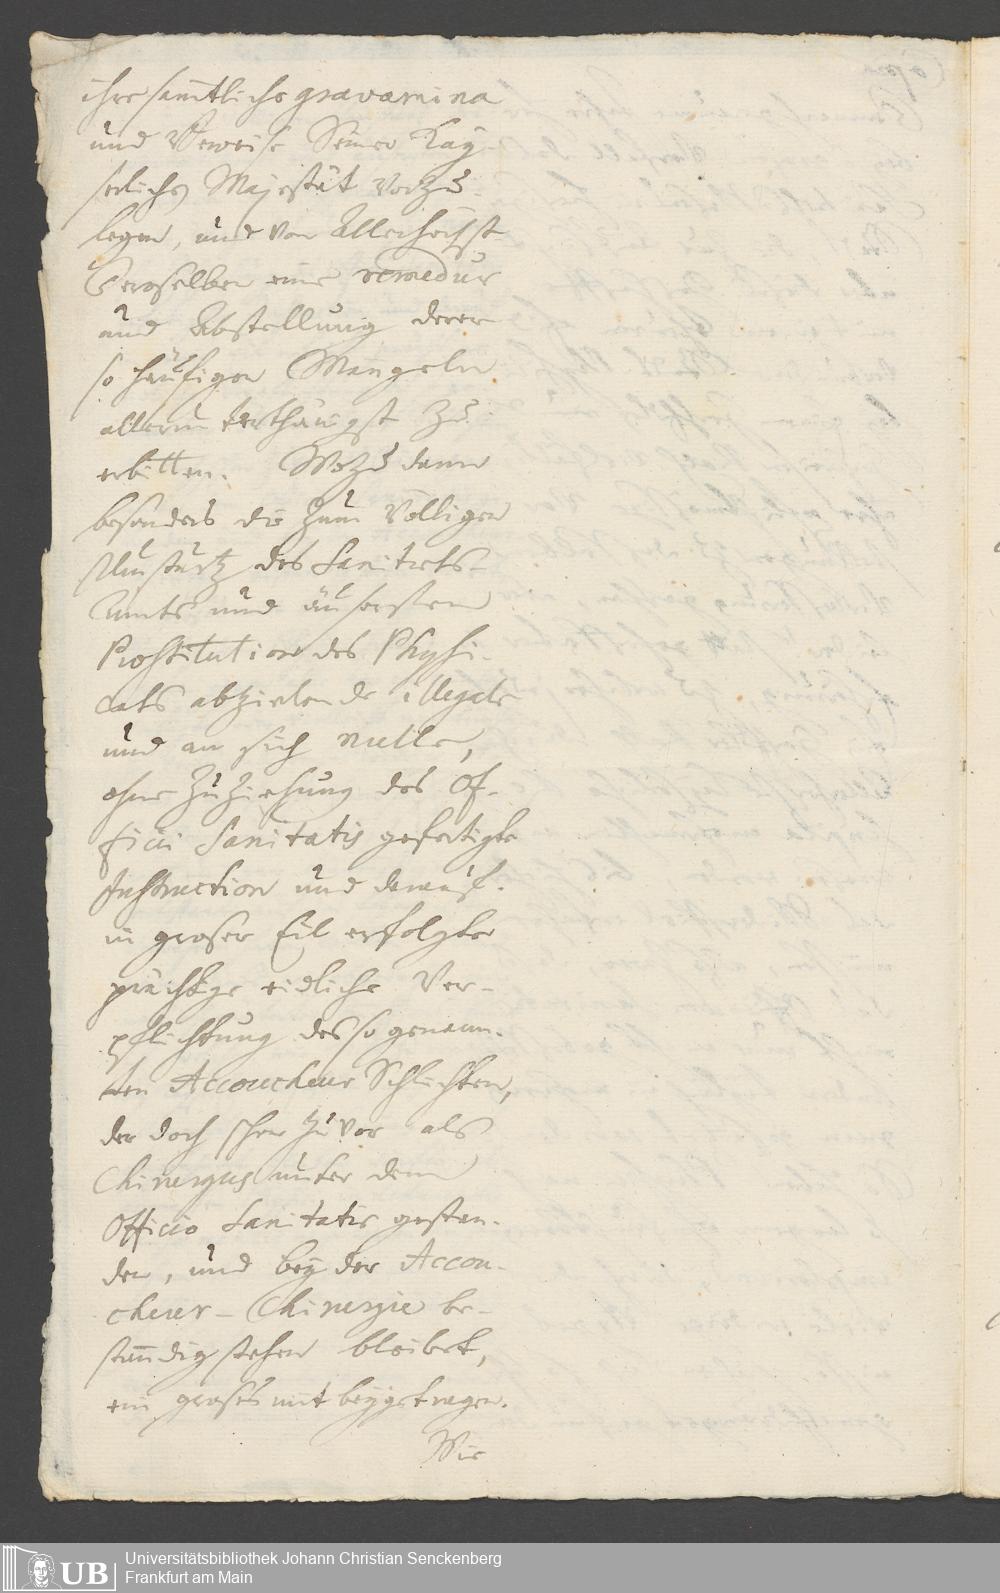 ihre samtliche gravamina
und Beweise Seiner Kay-
serlichen Majestät vorzu-
legen, und von Allerhöchst
Deroselben eine remedur
und Abstellung derer
so häufigen Mängeln
allerunterthänigst zu
erbitten. Wozu dann
besonders die zum Völligen
Umsturtz des Sanitäts-
Amts und äusersten
Prostitution des Physi-
cats abzielende illegale
und an sich nulle,
ohne Zuziehung des Of-
ficii Sanitatis gefertigte
Instruction und darauf
in groser Eil erfolgte
eidliche Ver-
pflichtung des so genann-
ten Accoucheur Schlichten,
der doch schon zuvor als
Chirurgus unter dem
Officio Sanitatis gestan-
den, und bey der Accou-
cheur-Chirurgie be-
ständig stehen bleibet,
ein groses mit beygetragen.
Wie
UB
Universitätsbibliothek Johann Christian Senckenberg
Frankfurt am Main